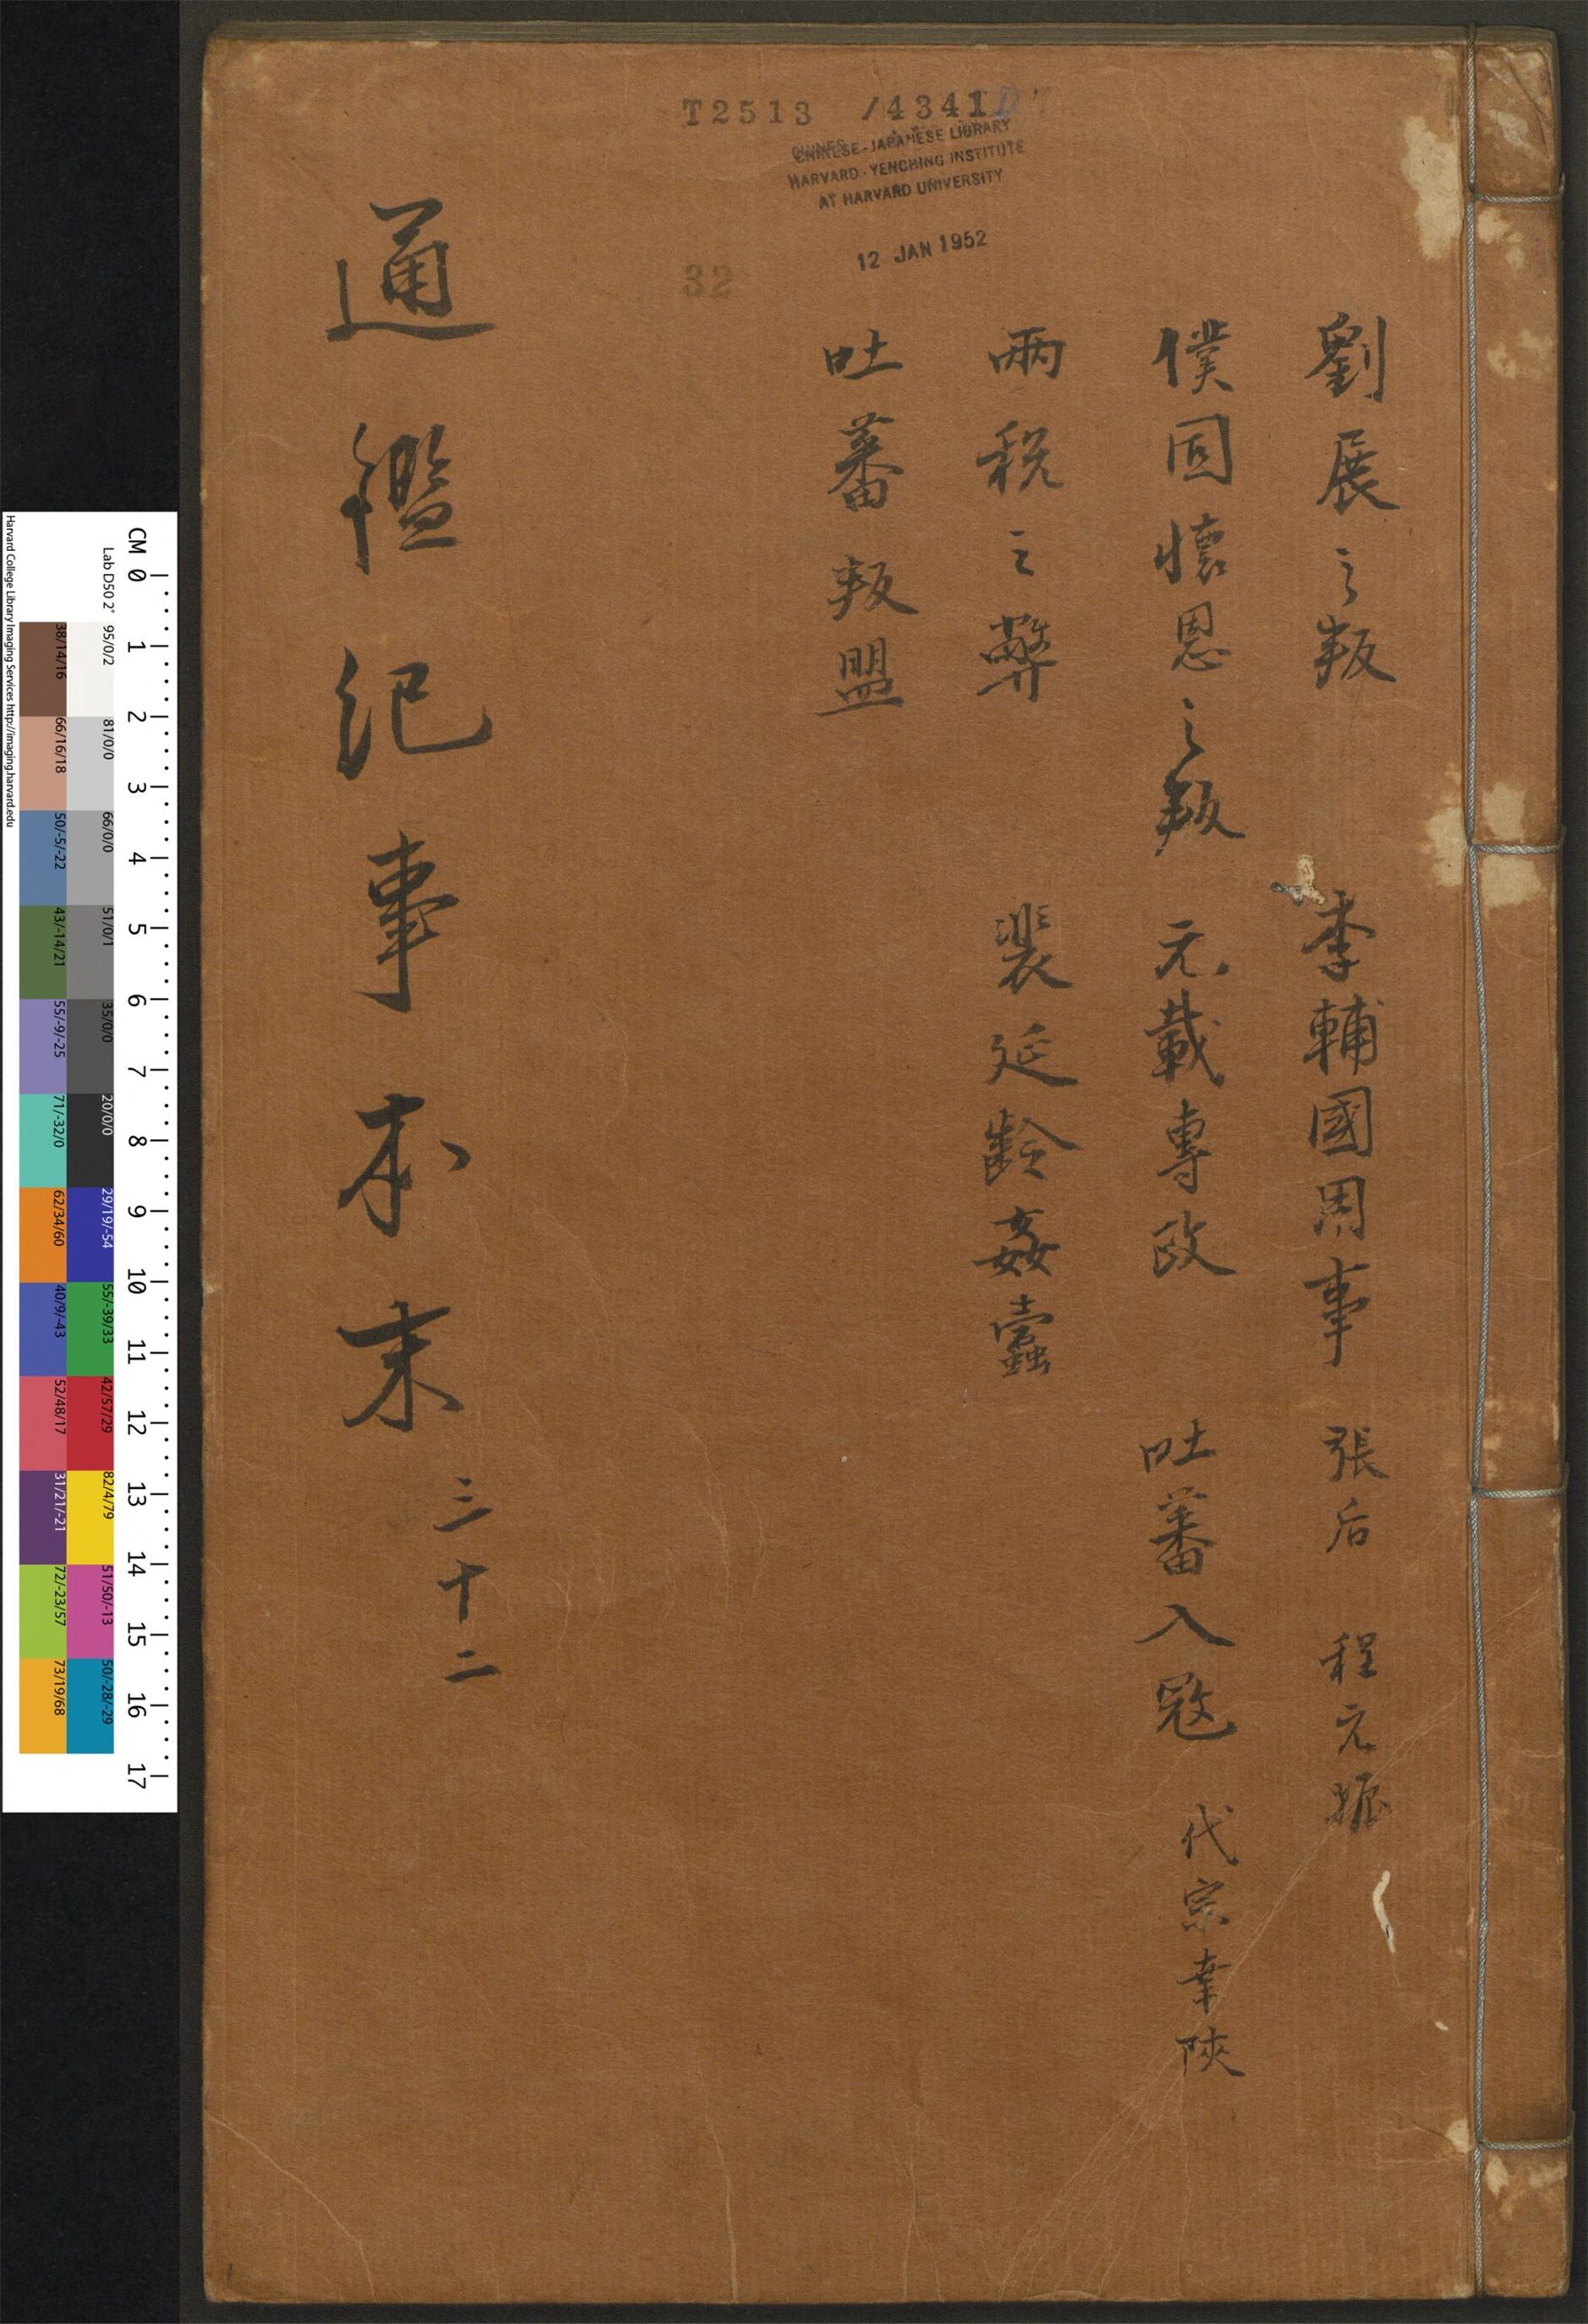 T2513 /4341
CHINESE-JAPANESE LIBRARY
HARVARD-YENCHING INSTITUTE
AT HARVARD UNIVERSITY
12 JAN 1952
32
劉展之叛 李輔國用事 張后 程元振
僕固懷恩之叛 元載專政 吐蕃入寇 代宗幸陝
兩稅之弊 裴延齡姦蠹
吐蕃叛盟
通鑑紀事本末 三十二
CM 0 1 2 3 4 5 6 7 8 9 10 11 12 13 14 15 16 17
Lab D50 2° 95/0/2 81/0/0 66/0/0 51/0/1 35/0/0 20/0/0 29/19/-54 55/-39/33 42/57/29 82/4/79 51/50/-13 50/-28/-29
38/14/16 66/16/18 50/-5/-22 43/-14/21 55/-9/-25 71/-32/0 62/34/60 40/9/-43 52/48/17 31/21/-21 72/-23/57 73/19/68
Harvard College Library Imaging Services http://imaging.harvard.edu